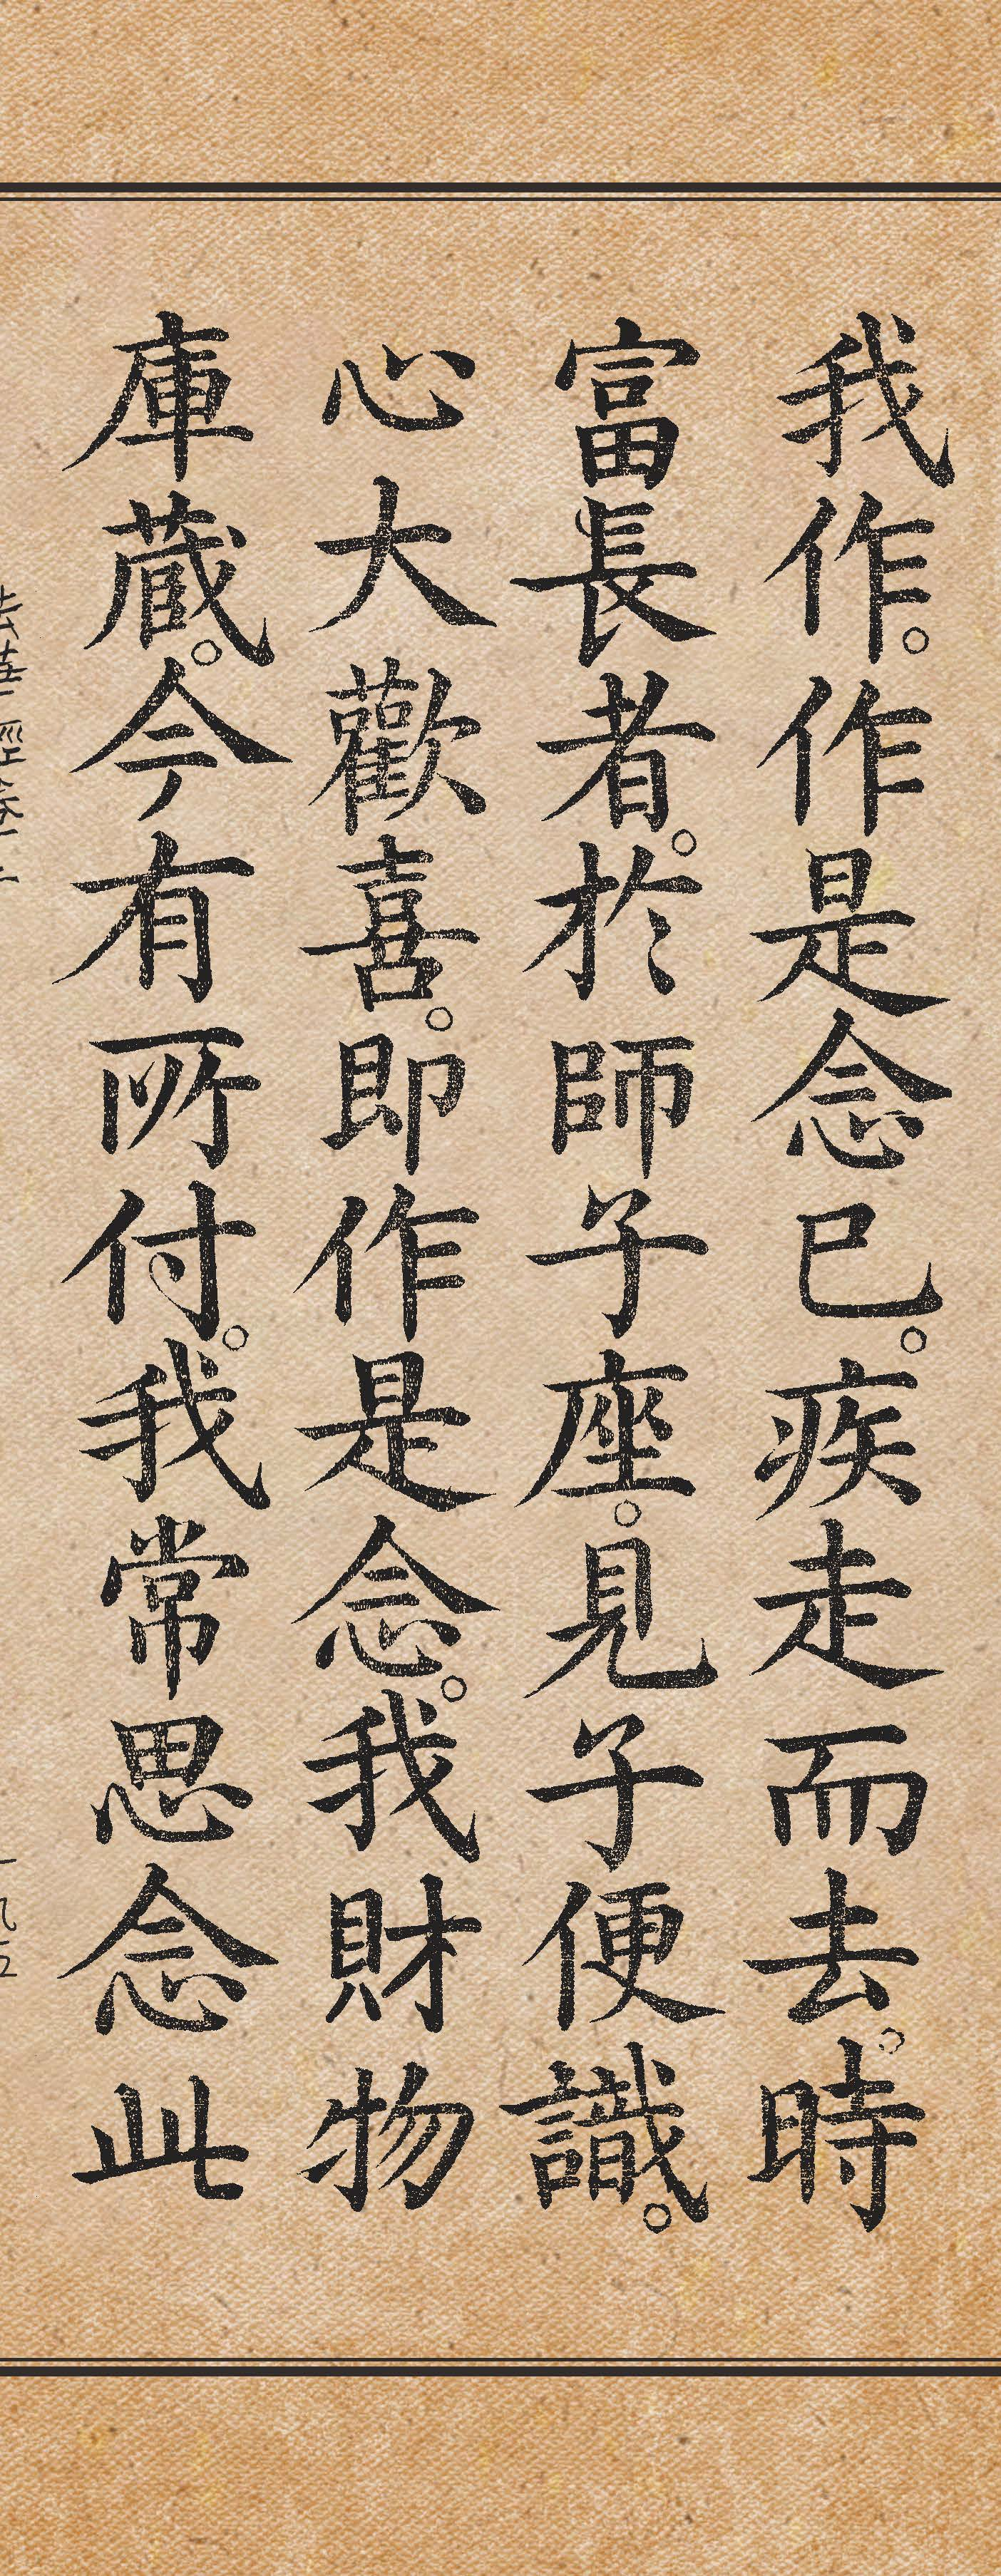 我作。作是念已。疾走而去。時
富長者。於師子座。見子便識。
心大歡喜。即作是念。我財物
庫藏。今有所付。我常思念此